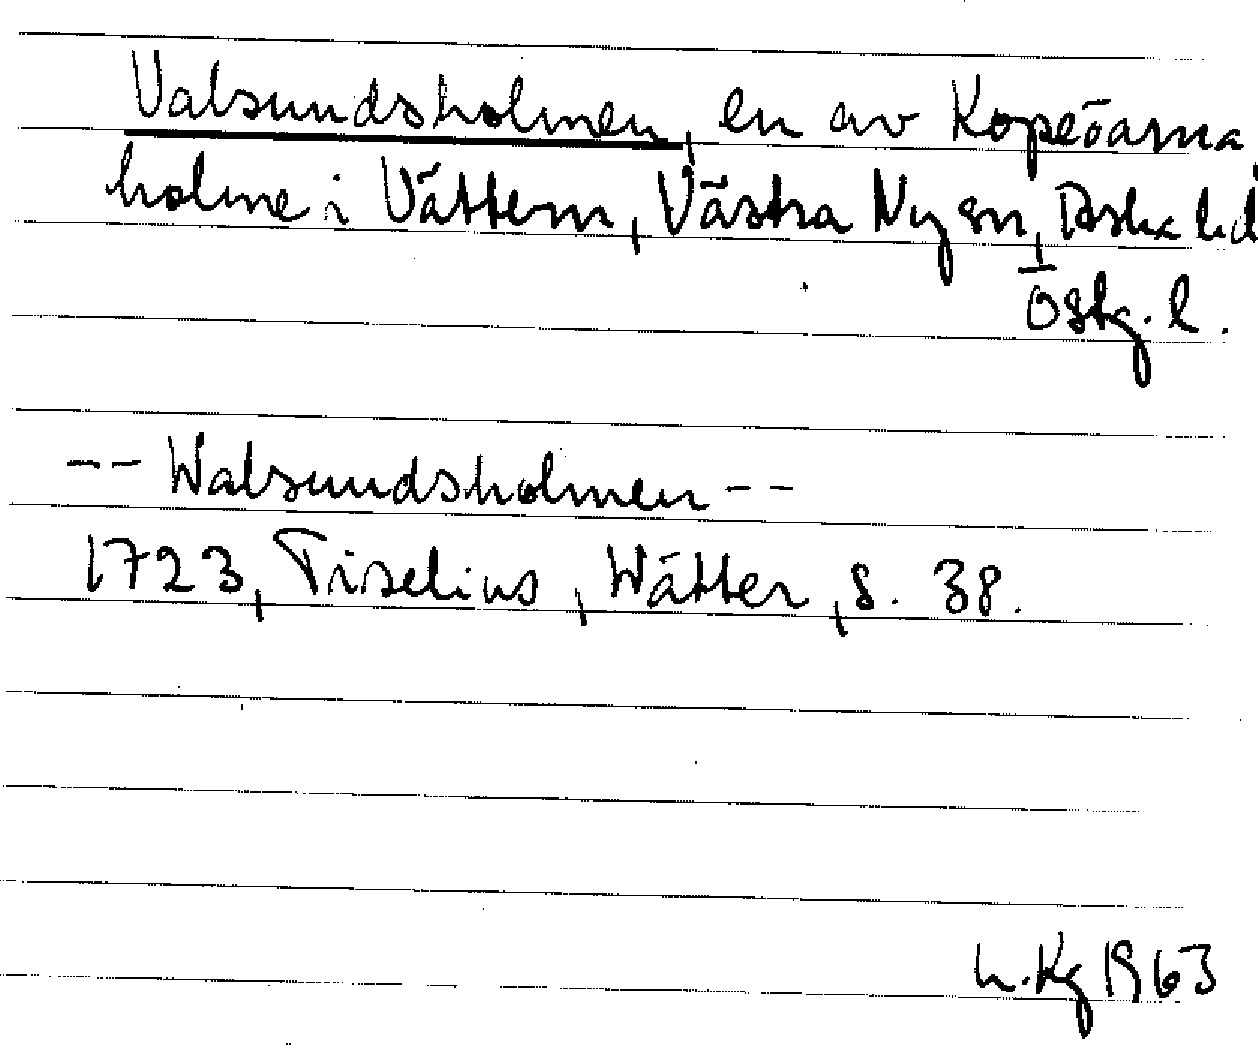 Valsundsholmen, en av Kopeöarna
holme i Vättern, Västra Ny sn, Aska hd
Östg. l.
-- Walsundsholmen --
1723, Tiselius, Wätter, s. 38.
h.Kg 1963